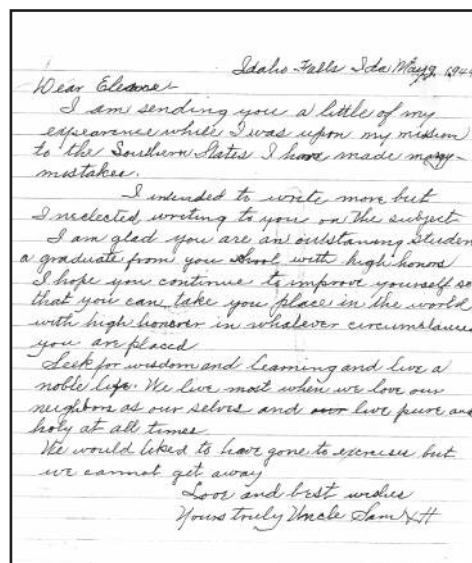 Idaho Falls Ida May 9, 194
Dear Eleanor
I am sending you a little of my
expearence while I was upon my mission
to the Southern States I have made many
mistakes.
I intended to write more but
I neclected writing to you on the subject
I am glad you are an outstaning studen
a graduate from you shool with high honors
I hope you continue to improve yourself so
that you can take you place in the world
with high honor in whatever circumstances
you are placed
Seek for wisdom and learning and live a
noble life. We live most when we love our
neighbors as our selves and our live pure and
holy at all times
We would liked to have gone to exercises but
we cannot get away
Love and best wishes
Yours truly Uncle Sam H